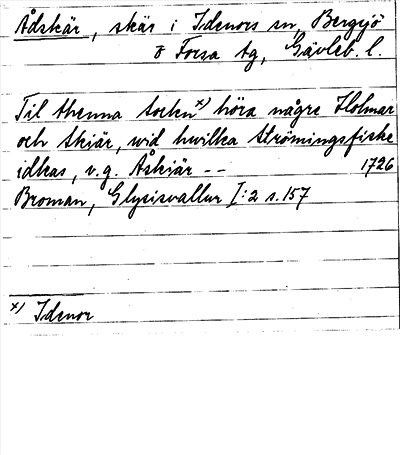 Ådskär, skär i Idenors sn, Bergsjö
o Forsa tg, Gävleb. l.
Til thenna socken x) höra någre Holmar
och Skiär, wid hwilka Strömingsfiske
idkas, v.g. Åskiär -- 1726
Broman, Glysisvallur I:2 s. 157
x) Idenor